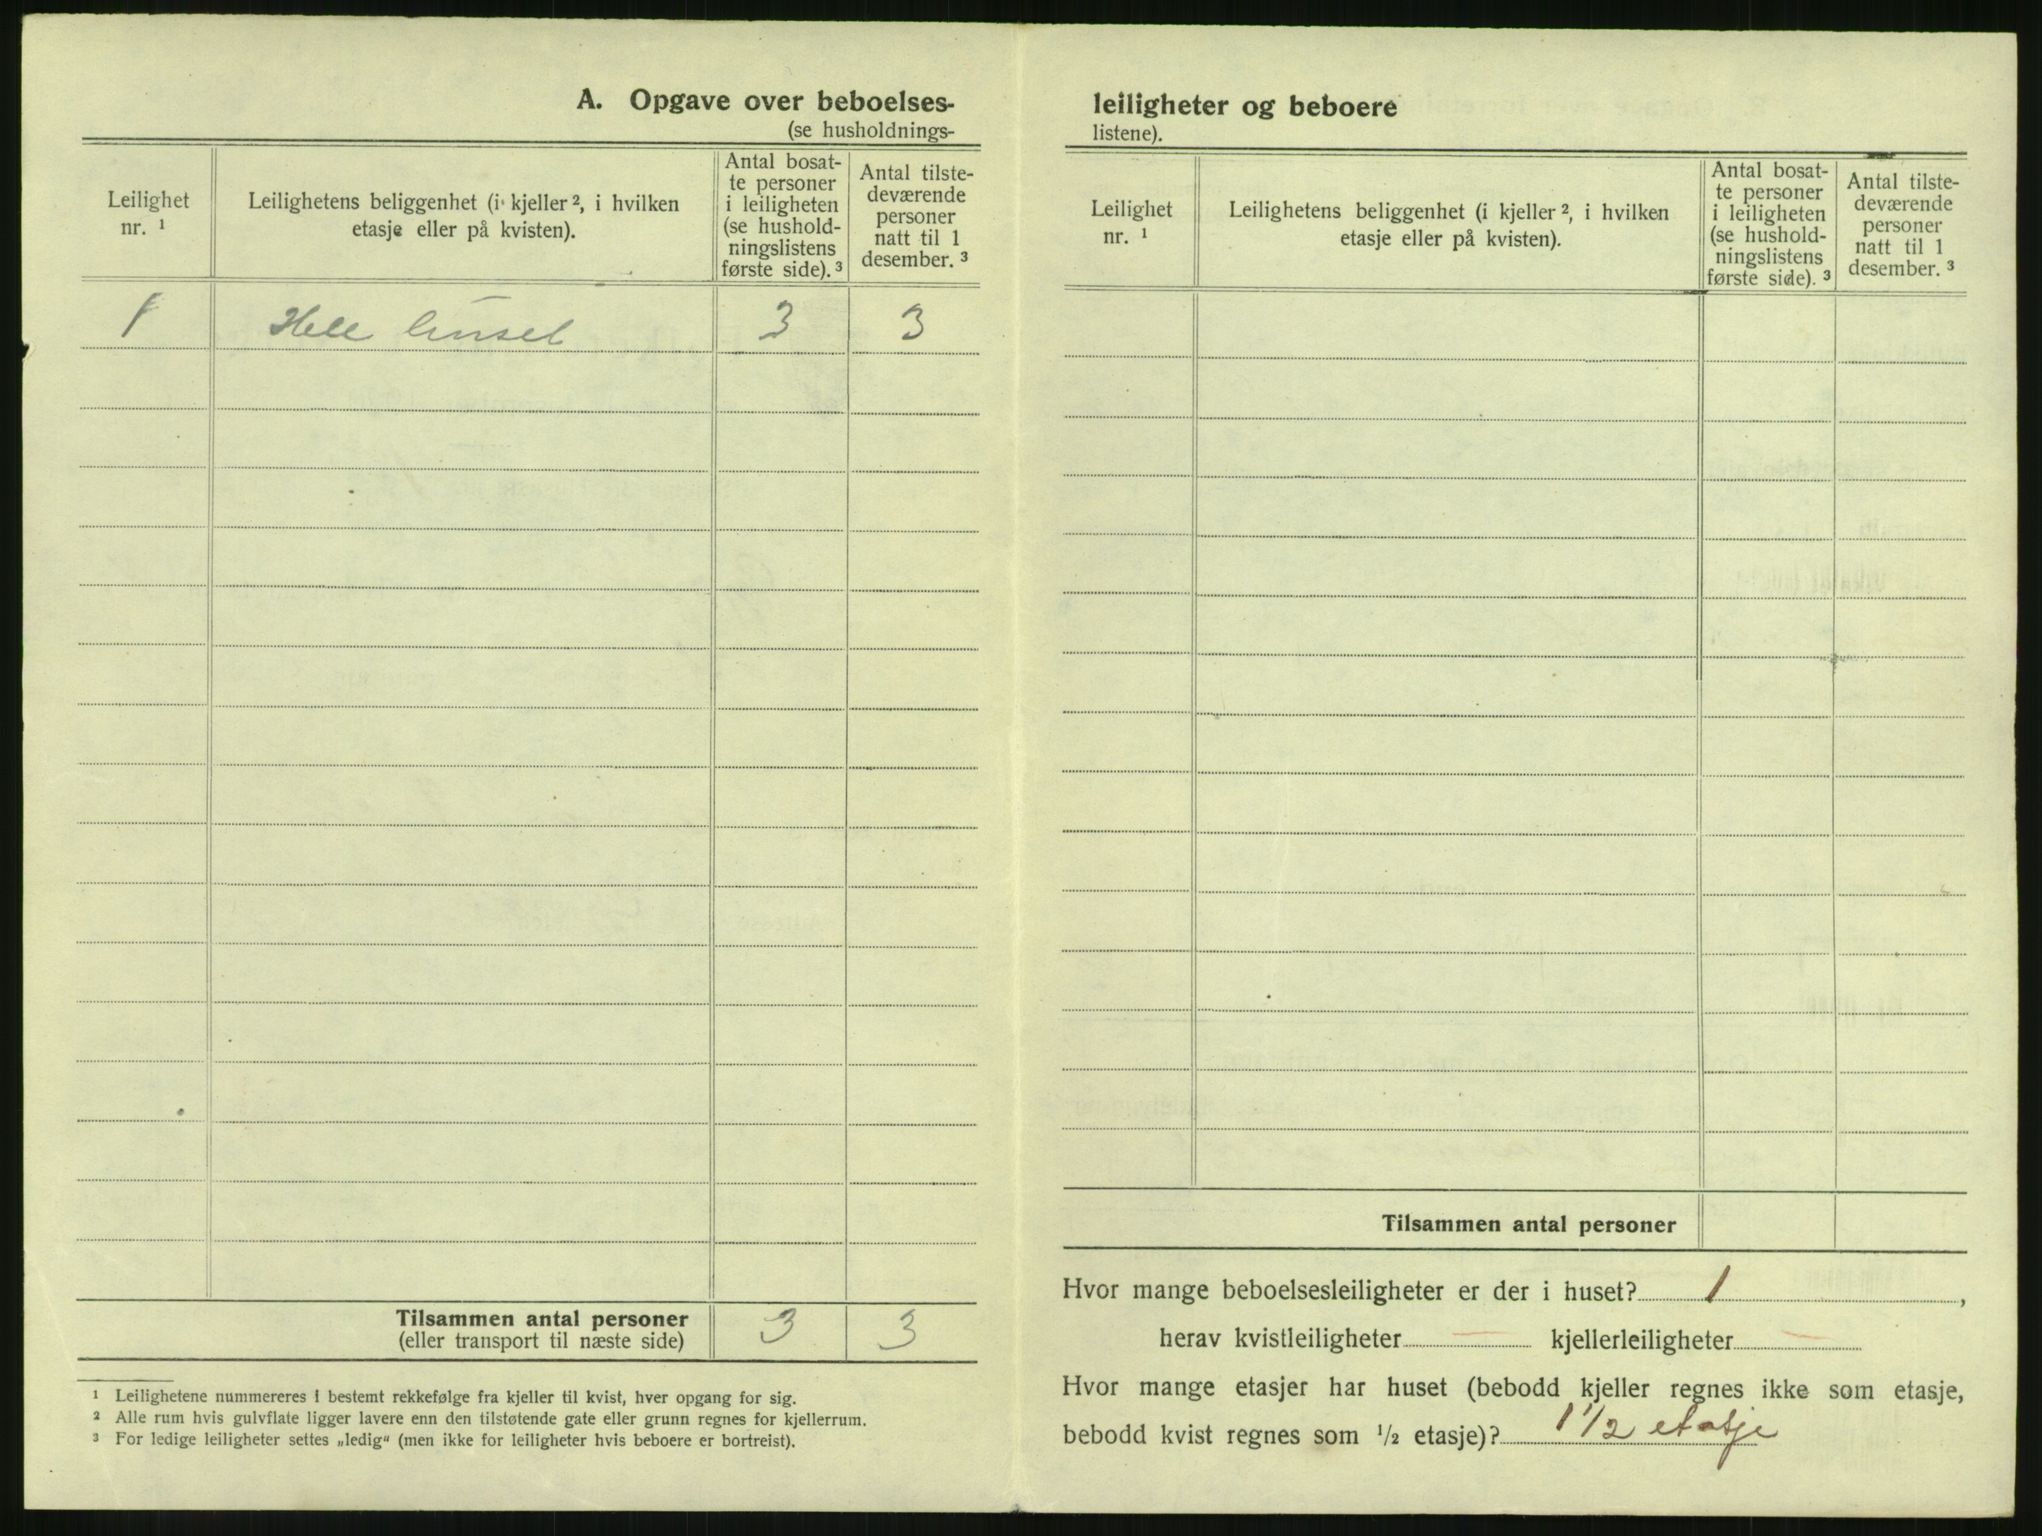 A. Opgave over beboelses-
(se husholdnings-
Leilighet nr. 1
Leilighetens beliggenhet (i kjeller 2, i hvilken etasje eller på kvisten).
Antal bosat-
te personer
i leiligheten
(se hushold-
ningslistens
første side). 3
Antal tilste-
deværende
personer
natt til 1
desember. 3
1 Hele huset 3 3
Tilsammen antal personer 3 3
(eller transport til næste side)
1 Leilighetene nummereres i bestemt rekkefølge fra kjeller til kvist, hver opgang for sig.
2 Alle rum hvis gulvflate ligger lavere enn den tilstøtende gate eller grunn regnes for kjellerrum.
3 For ledige leiligheter settes „ledig“ (men ikke for leiligheter hvis beboere er bortreist).
leiligheter og beboere
listene).
Leilighet nr. 1
Leilighetens beliggenhet (i kjeller 2, i hvilken etasje eller på kvisten).
Antal bosat-
te personer
i leiligheten
(se hushold-
ningslistens
første side). 3
Antal tilste-
deværende
personer
natt til 1
desember. 3
Tilsammen antal personer
Hvor mange beboelsesleiligheter er der i huset? 1,
herav kvistleiligheter — kjellerleiligheter —
Hvor mange etasjer har huset (bebodd kjeller regnes ikke som etasje,
bebodd kvist regnes som 1/2 etasje)? 1 1/2 etasje